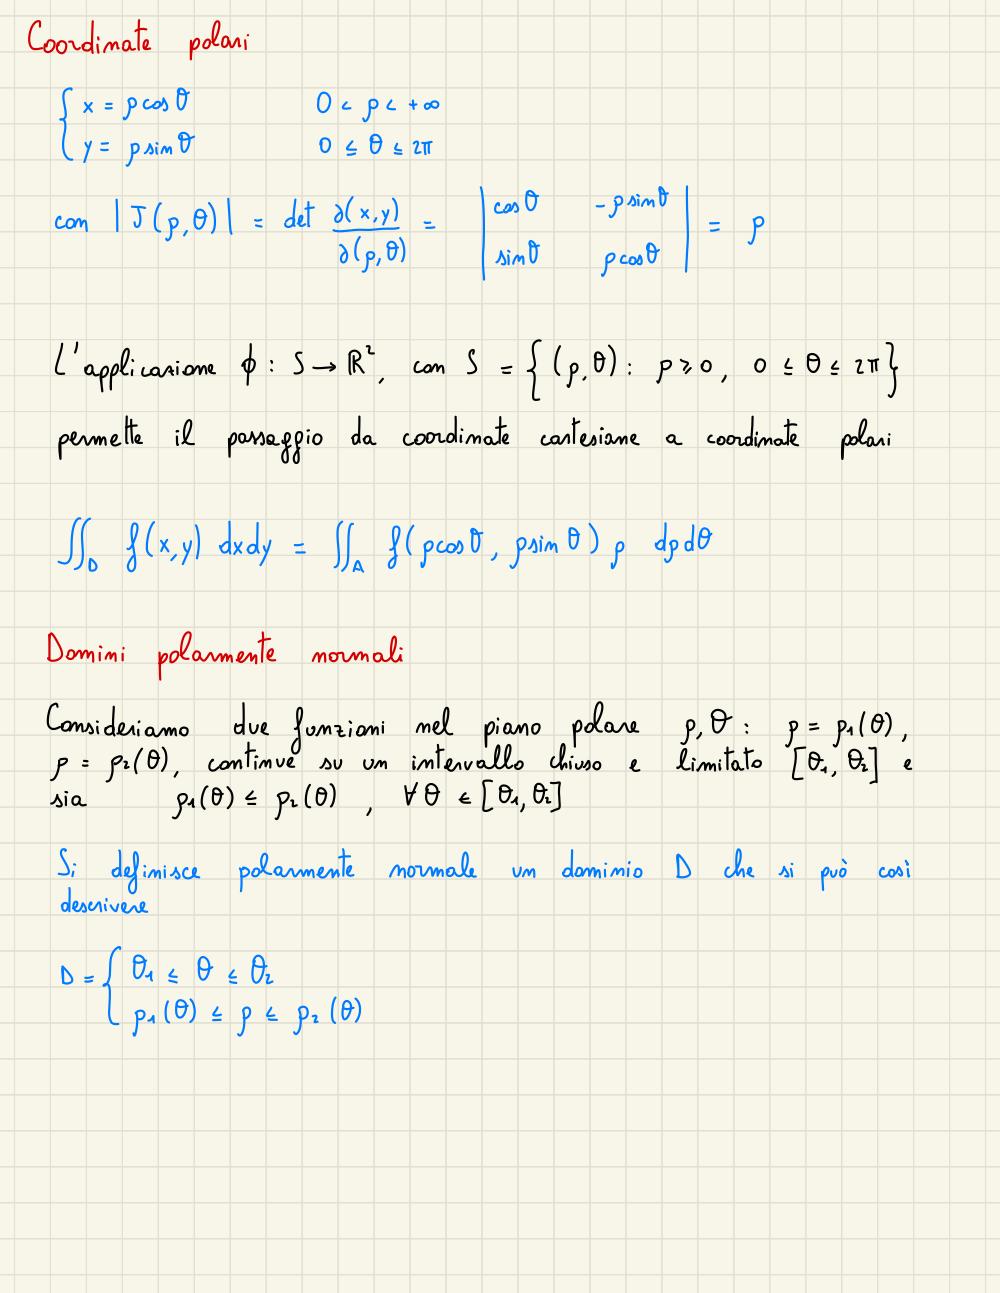 Coordinate polari
{ x = ρ cos θ 0 < ρ < +∞
y = ρ sin θ 0 ≤ θ ≤ 2π
con |J(ρ,θ)| = det ∂(x,y)/∂(ρ,θ) = | cos θ -ρ sin θ | = ρ
sin θ ρ cos θ
L'applicazione ϕ : S → ℝ², con S = {(ρ,θ) : ρ ≥ 0, 0 ≤ θ ≤ 2π}
permette il passaggio da coordinate cartesiane a coordinate polari
∬_D f(x,y) dxdy = ∬_A f(ρ cos θ, ρ sin θ) ρ dρdθ
Domini polarmente normali
Consideriamo due funzioni nel piano polare ρ,θ : ρ = ρ₁(θ),
ρ = ρ₂(θ), continue su un intervallo chiuso e limitato [θ₁, θ₂] e
sia ρ₁(θ) ≤ ρ₂(θ) , ∀ θ ∈ [θ₁, θ₂]
Si definisce polarmente normale un dominio D che si può così
descrivere
D = { θ₁ ≤ θ ≤ θ₂
ρ₁(θ) ≤ ρ ≤ ρ₂(θ)